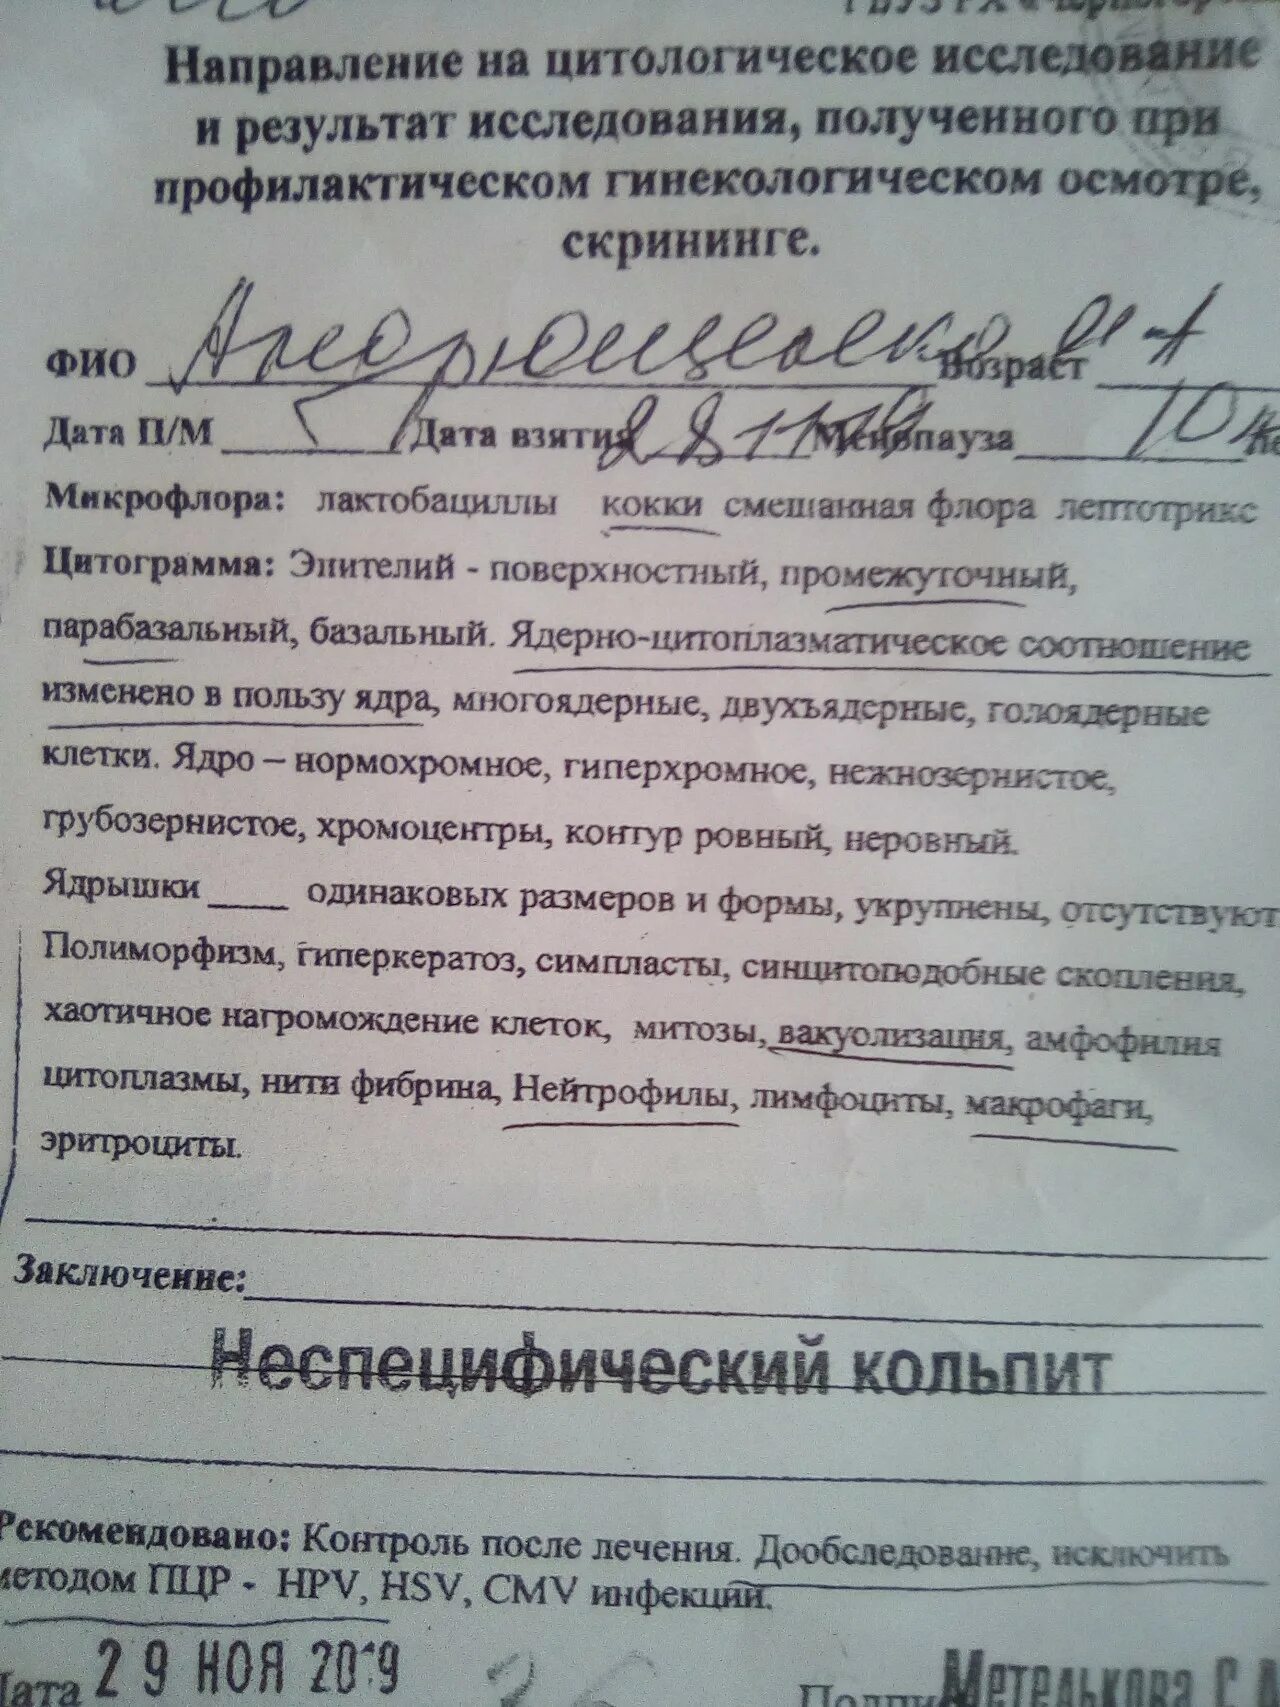 ГБУЗ РХ «Черногор
Направление на цитологическое исследование
и результат исследования, полученного при
профилактическом гинекологическом осмотре,
скрининге.
ФИО Возраст
Дата П/М Дата взятия 28 11 19 Менопауза 10
Микрофлора: лактобациллы кокки смешанная флора лептотрикс
Цитограмма: Эпителий - поверхностный, промежуточный,
парабазальный, базальный. Ядерно-цитоплазматическое соотношение
изменено в пользу ядра, многоядерные, двухъядерные, голоядерные
клетки. Ядро – нормохромное, гиперхромное, нежнозернистое,
грубозернистое, хромоцентры, контур ровный, неровный.
Ядрышки ____ одинаковых размеров и формы, укрупнены, отсутствуют
Полиморфизм, гиперкератоз, симпласты, синцитоподобные скопления,
хаотичное нагромождение клеток, митозы, вакуолизация, амфофилия
цитоплазмы, нити фибрина, Нейтрофилы, лимфоциты, макрофаги,
эритроциты.
Заключение:
Неспецифический кольпит
Рекомендовано: Контроль после лечения. Дообследование, исключить
методом ПЦР - HPV, HSV, CMV инфекций.
Дата 29 НОЯ 2019
Подпи Метелькова С.А